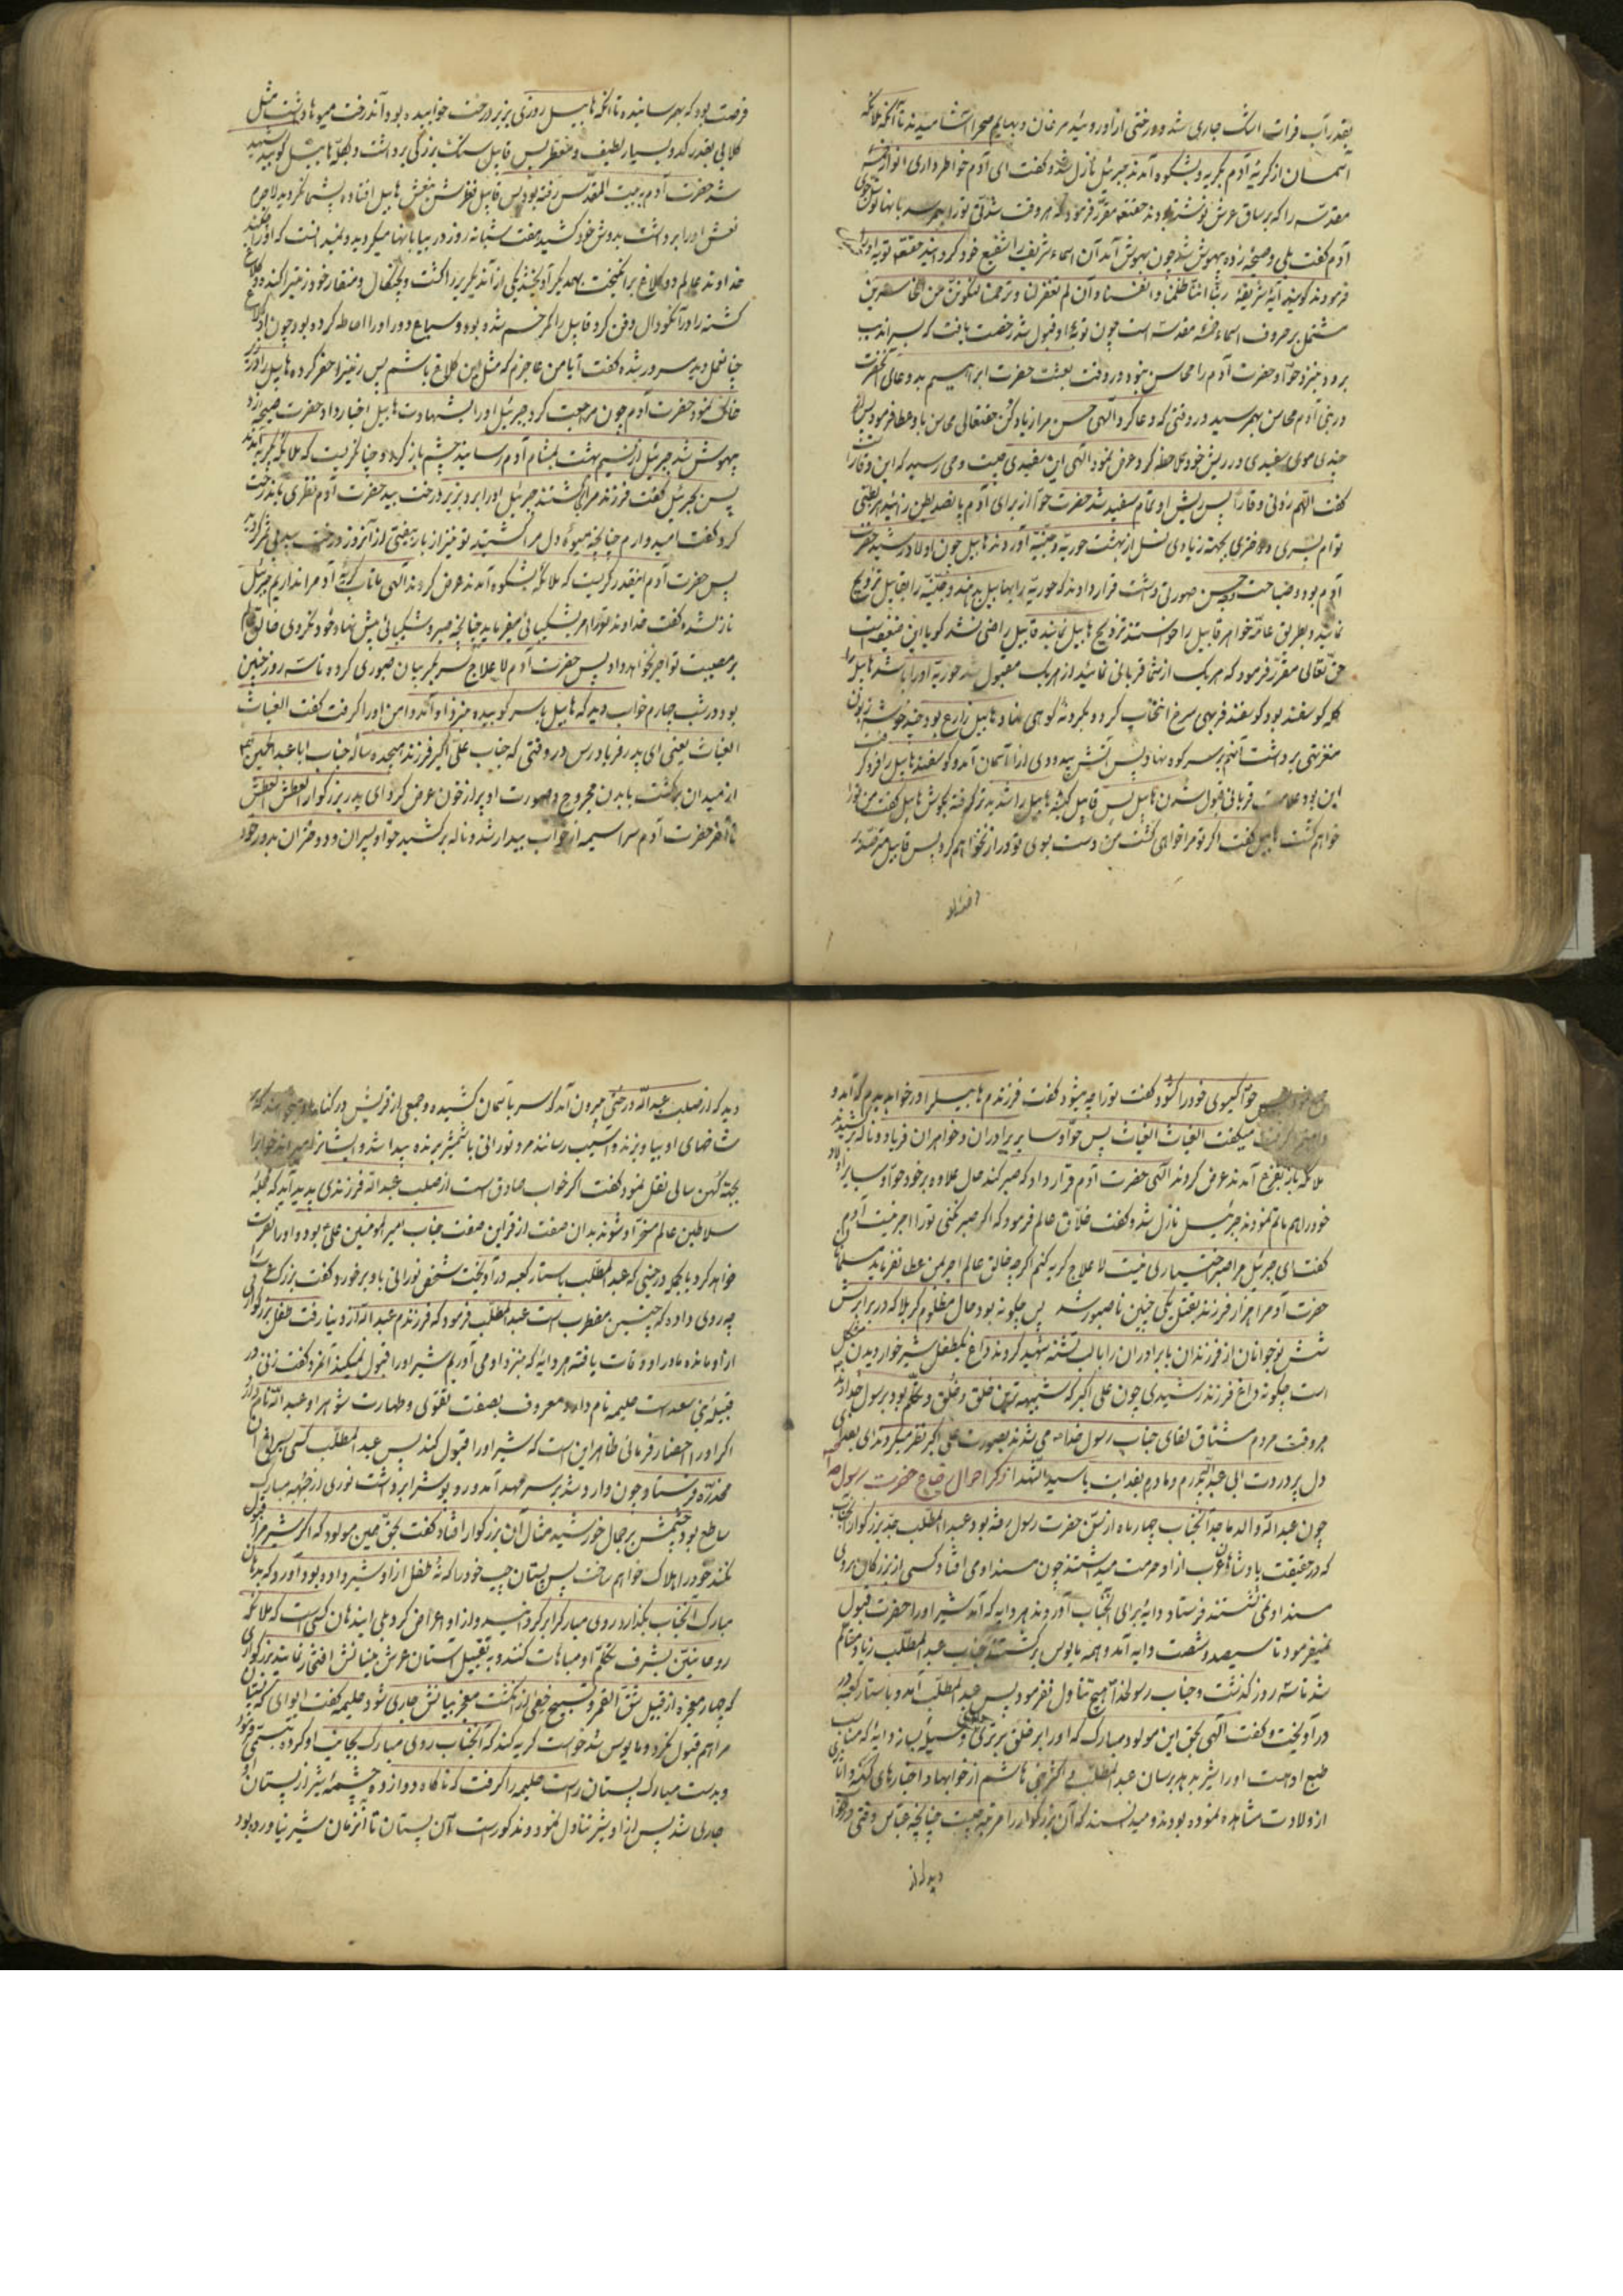 بقدر آب فرات اشک جاری شد و درختی از آن روئید مرغان و بهایم صحرا آشامیدند تا آنکه ملائکه
آسمان از گریهٔ آدم بگریه و بشکوه آمدند جبرئیل نازل شد و گفت ای آدم خواطر داری انوار خمسهٔ
مقدسه را که بر ساق عرش نوشته بودند حقتعالی مقرر فرمود که هر وقت شدتی تو را بهم رسد بآنها توسل جوی
آدم گفت بلی و صیحه زده بیهوش شد چون بهوش آمد آن اسماء شریفه را شفیع خود گردانید حقتعالی توبه او را
فرمودند گویند آیهٔ شریفهٔ ربنا اننا ظلمنا انفسنا و ان لم تغفر لنا و ترحمنا لنکونن من الخاسرین
مشتمل بر حروف اسماء خمسهٔ مقدسه است چون توبهٔ او قبول شد رخصت یافت که بسراندیب
برود نیز و حوا و حضرت آدم را محاسن نبود در وقت بعثت حضرت ابراهیم بدعای آنحضرت
در بنی آدم محاسن بهمرسید در وقتی که دعا کرد الهی حسن مرا زیاد کن حقتعالی محاسن باو عطا فرمود پس
چندی موی سفیدی در ریش خود ملاحظه کرد عرض نمود الهی این سفیدی چیست وحی رسید که این وقار
گفت اللهم زدنی وقارا پس ریش او تمام سفید شد حضرت حوا از برای آدم پانصد بطن زائید هر بطنی
توأم پسری و دختری بجهة زیادی نسل از بهشت حوریه و جنیه آوردند هابیل چون اولاد رشید حضرت
آدم بود و ضباحت و حسن صورتی داشت قرار دادند که حوریه را بهابیل بدهند و جنیه را بقابیل تزویج
نمایند و بطریق عامه خواهر قابیل را خواستند تزویج هابیل نمایند قابیل راضی نشد گویا این ضعیف است
حق تعالی مقرر فرمود که هر یک از شما قربانی نمائید از هر یک مقبول شد حوریه او را باشد هابیل را
گله گوسفند بود گوسفند فربهی سرخ انتخاب کرده و بگردنهٔ کوهی نهاد و قابیل زارع بود چند خوشه زبون
مغزنتی برداشت آنهم بر سر کوه نهاد پس آتش بیدودی از آسمان آمد و گوسفند هابیل را فرو گرفت
این بود علامت قربانی قبول شدن هابیل پس قابیل کینهٔ هابیل را شدیدتر گرفته بگوش هابیل گفت من تو را
خواهم کشت هابیل گفت اگر تو مرا خواهی کشت من دست بسوی تو دراز نخواهم کرد پس قابیل مترصد
فرصت بود که بهمرسانیده تا آنکه هابیل روزی بزیر درخت خوابیده بود و آن درخت میوه‌ها داشت مثل
گلابی بقدر کدو بسیار لطیف و معطر پس قابیل سنگ بزرگی برداشت و بکلهٔ هابیل کوبید شهید
شد حضرت آدم ببیت المقدس رفته بود پس قابیل نظرش بنعش هابیل افتاده پشیمان گردید لاجرم
نعش او را برداشت بدوش خود کشید هفت شبانه روز در بیابانها میگردید و نمیدانست که او را چکند
خداوند عالم دو کلاغ برانگیخت بهمدیگر آویختند یکی از آن دیگریرا کشت و بچنگال و منقار خود زمین را کند و کلاغ
کشته را در آن گودال دفن کرد و قابیل را کمر خم شده بود و سباع دور او را احاطه کرده بود چون از کلاغ
چنان عمل دید مسرور شده گفت آیا من عاجزم که مثل این کلاغ باشم پس زمین را حفر کرده هابیل را در زیر
خاک نمود حضرت آدم چون مراجعت کرد جبرئیل او را بشهادت هابیل اخبار داد حضرت صیحه زد
بیهوش شد جبرئیل از نسیم بهشت بمشام آدم رسانید چشم باز کرد و چنان گریست که ملائکه بگریه آمدند
پس بجبرئیل گفت فرزند مرا کی کشتند جبرئیل او را برد و بزیر درخت سپید حضرت آدم نظری باندرخت
کرد گفت امیدوارم چنانچه میوهٔ دل مرا کشتند تو نیز از بار بیفتی از آنروز درخت سپید بی ثمر گردید
پس حضرت آدم اینقدر گریست که ملائکه بشکوه آمدند عرض کردند الهی ما تاب گریهٔ آدم را نداریم جبرئیل
نازل شد و گفت خداوند تو را امر بشکیبائی میفرماید چنانچه صبر و شکیبائی پیش نهاد خود نکردی خالق عالم
بر مصیبت تو اجر نخواهد داد پس حضرت آدم لاعلاج سر بگریبان صبوری کرده تا سه روز چنین
بود در شب چهارم خواب دید که هابیل با سر کوبیده نزد او آمد و دامن او را گرفت گفت الغیاث
الغیاث یعنی ای پدر فریاد رس در وقتی که جناب علی اکبر فرزند هیجده سالهٔ جناب اباعبدالحسین
از میدان برگشت با بدن مجروح و صورت او پر از خون عرض کرد ای پدر بزرگوار العطش العطش
تا آخر حضرت آدم سراسیمه از خواب بیدار شد و ناله برکشید حوا و پسران و دختران بدور خود
حوا گیسوی خود را گشود گفت تو را چه میشود گفت فرزندم هابیل را در خواب دیدم که آمد و
میگفت الغیاث الغیاث پس حوا و سایر برادران و خواهران فریاد و ناله برکشیدند
ملائکه باز بفزع آمدند عرض کردند الهی حضرت آدم قرار داد که صبر کند حال علاوه بر خود حوا و سایر اولاد
خود را هم مالم نمودند جبرئیل نازل شد و گفت خلاق عالم فرمود که اگر صبر نکنی تو را اجر نیست آدم
گفت ای جبرئیل مرا صبر اختیاری نیست لاعلاج گریه کنم اگر چه خالق عالم اجر بمن عطا نفرماید مسلمانان
حضرت آدم را هزار فرزند بقتل یکی چنین ناصبور شد پس چگونه بود حال مظلوم کربلا که در برابرش
شش نوجوانان از فرزندان با برادران را با لب تشنه شهید کردند داغ یکطفل شیرخوار دیدن مشکل
است چگونه داغ فرزند رشیدی چون علی اکبر که شبیه ترین خلق و خلق و تکلم بود برسول خدا
هر وقت مردم مشتاق لقای جناب رسول خدا می شدند بصورت علی اکبر نظر میکردند ای بصد
دل پر درودت ابی عبدالله پدرم و مادرم بفدایت یا سید الشهدا ذکر احوال رضاع حضرت رسول
چون عبدالله والد ماجد آنجناب چهار ماه از سن حضرت رسول رفته بود عبدالمطلب جد بزرگوار آنجناب
که در حقیقت پادشاهان عرب از او حرمت میداشتند چون مسند او می افتاد کسی از بزرگان بر روی
مسند او نمی نشستند فرستاد دایهٔ برای آنجناب آوردند هر دایه که آمد شیر او را حضرت قبول
نمیفرمود تا سیصد و شصت دایه آمد و همه مایوس برگشتند جناب عبدالمطلب زیاد متألم
شد تا سه روز گذشت و جناب رسولخدا هیچ تناول نفرمود پس عبدالمطلب آمد و باستار کعبه در
در آویخت و گفت الهی بحق این مولود مبارک که او را بر خلق برتری دادی وسیله بساز دایهٔ که مناسب
طبع اوست او را شیر بدهد برسان عبدالمطلب بنی هاشم از خوابها و اخبارهای کهنه و آثار
از ولادت مشاهده نموده بودند و میدانستند که آن بزرگوار را مرتبه چیست چنانچه عباس وقتی در خواب
دید که از
دید که از صلب عبدالله درختی بیرون آمد که سر بآسمان کشیده و جمعی از قریش در کنار
شاخهای او بیاویزند و آسیب رسانند مرد نورانی با شمشیر برنده پیدا شد و ایشانرا
بجهة کهن سالی نقل نمود گفت اگر خواب صادق است از صلب عبدالله فرزندی پدید آید که جمله
سلاطین عالم مسخر او شوند بدان صفت از قراین صفت جناب امیرالمومنین علی بود و او را نصرت
خواهد کرد بالجمله در حینی که عبدالمطلب باستار کعبه در آویخت شخص نورانی باو برخورد گفت بزرگ عرب
چه روی داده که چنین مضطرب است عبدالمطلب فرمود که فرزندم عبدالله از دنیا رفت طفل بزرگواری
از او مانده مادر او وفات یافته هر دایهٔ که بنزد او می آوریم شیر او را قبول نمیکند آنمرد گفت زنی در
قبیلهٔ بنی سعد است حلیمه نام دارد معروف بصفت تقوی و طهارت شوهر او عبدالله نام دارد
اگر او را احضار فرمائی ظاهر این است که شیر او را قبول کند پس عبدالمطلب کسی بسراغ آن
مخدره فرستاد چون وارد شد بر سر مهد آمد و روپوش را برداشت نوری از جبههٔ مبارک
ساطع بود چشمش بر جمال خورشید مثال آن بزرگوار افتاد گفت بحق همین مولود که اگر شیر مرا قبول
نکند خود را هلاک خواهم ساخت پس پستان چپ خود را که نه طفل از او شیر داده بود آورد که بدهان
مبارک آنجناب بگذارد روی مبارک را برگردانید و از او اعراض کرد بلی ایندهان کسی است که ملائکه
روحانیین بشرف تکلم او مباهات کنند و بتقبیل آستان عرش بنیانش افتخار نمایند بزرگواری
که چهار معجزه از قبیل شق القمر و تسبیح حصی از انگشت معجز بیانش جاری شود حلیمه گفت ایوای که
مرا هم قبول نکرد و مایوس شد خواست گریه کند که آنجناب روی مبارک بجانب او کرده تبسمی فرمود
و بدست مبارک پستان راست حلیمه را گرفت که ناگاه دوازده چشمهٔ شیر از پستان او
جاری شد پس از او شیر تناول نمودند مذکور است که آن پستان تا آنزمان شیر نیاورده بود